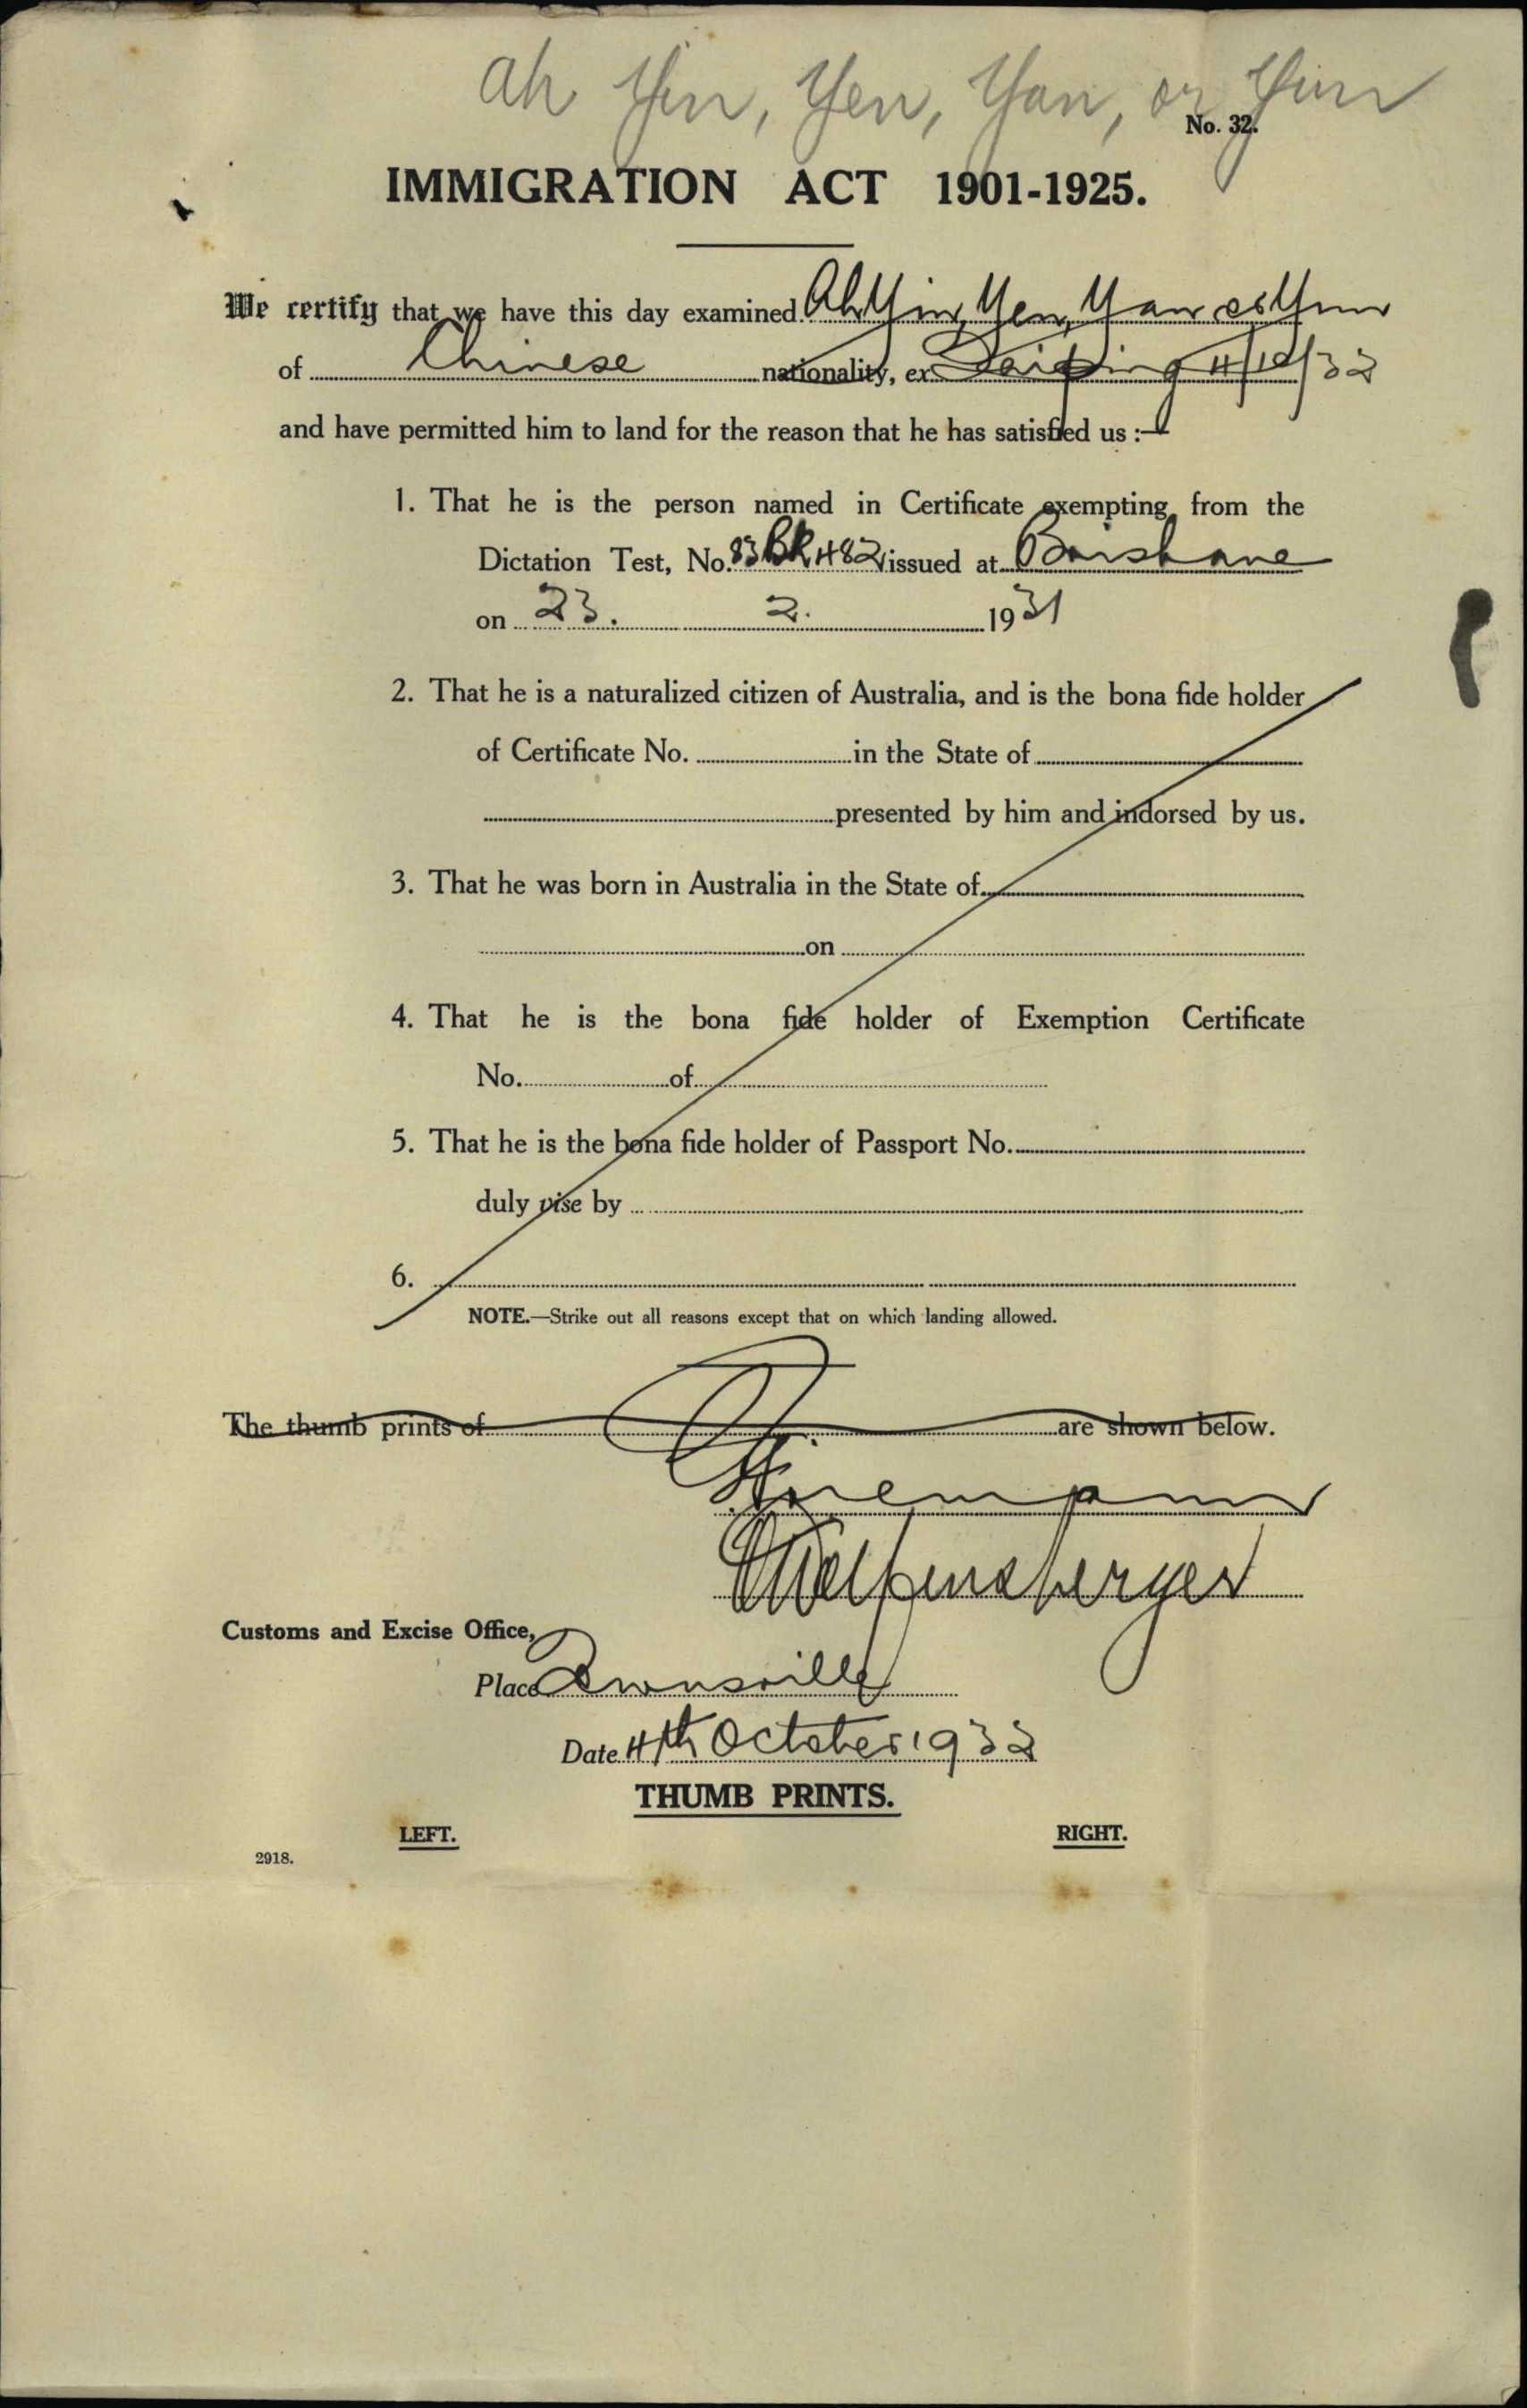 Ah Yin, Yen, Yan, or Yun
No. 32.
IMMIGRATION ACT 1901-1925.
We certify that we have this day examined Ah Yin, Yen, Yan or Yun
of Chinese nationality, ex Taiping 4/10/32
and have permitted him to land for the reason that he has satisfied us :—
1. That he is the person named in Certificate exempting from the
Dictation Test, No. issued at Brisbane
on 23. 2. 1931
2. That he is a naturalized citizen of Australia, and is the bona fide holder
of Certificate No. in the State of
presented by him and indorsed by us.
3. That he was born in Australia in the State of
on
4. That he is the bona fide holder of Exemption Certificate
No. of
5. That he is the bona fide holder of Passport No.
duly vise by
6.
NOTE.—Strike out all reasons except that on which landing allowed.
The thumb prints of are shown below.
Customs and Excise Office,
Place Townsville
Date 4th October 1932
THUMB PRINTS.
LEFT. RIGHT.
2918.